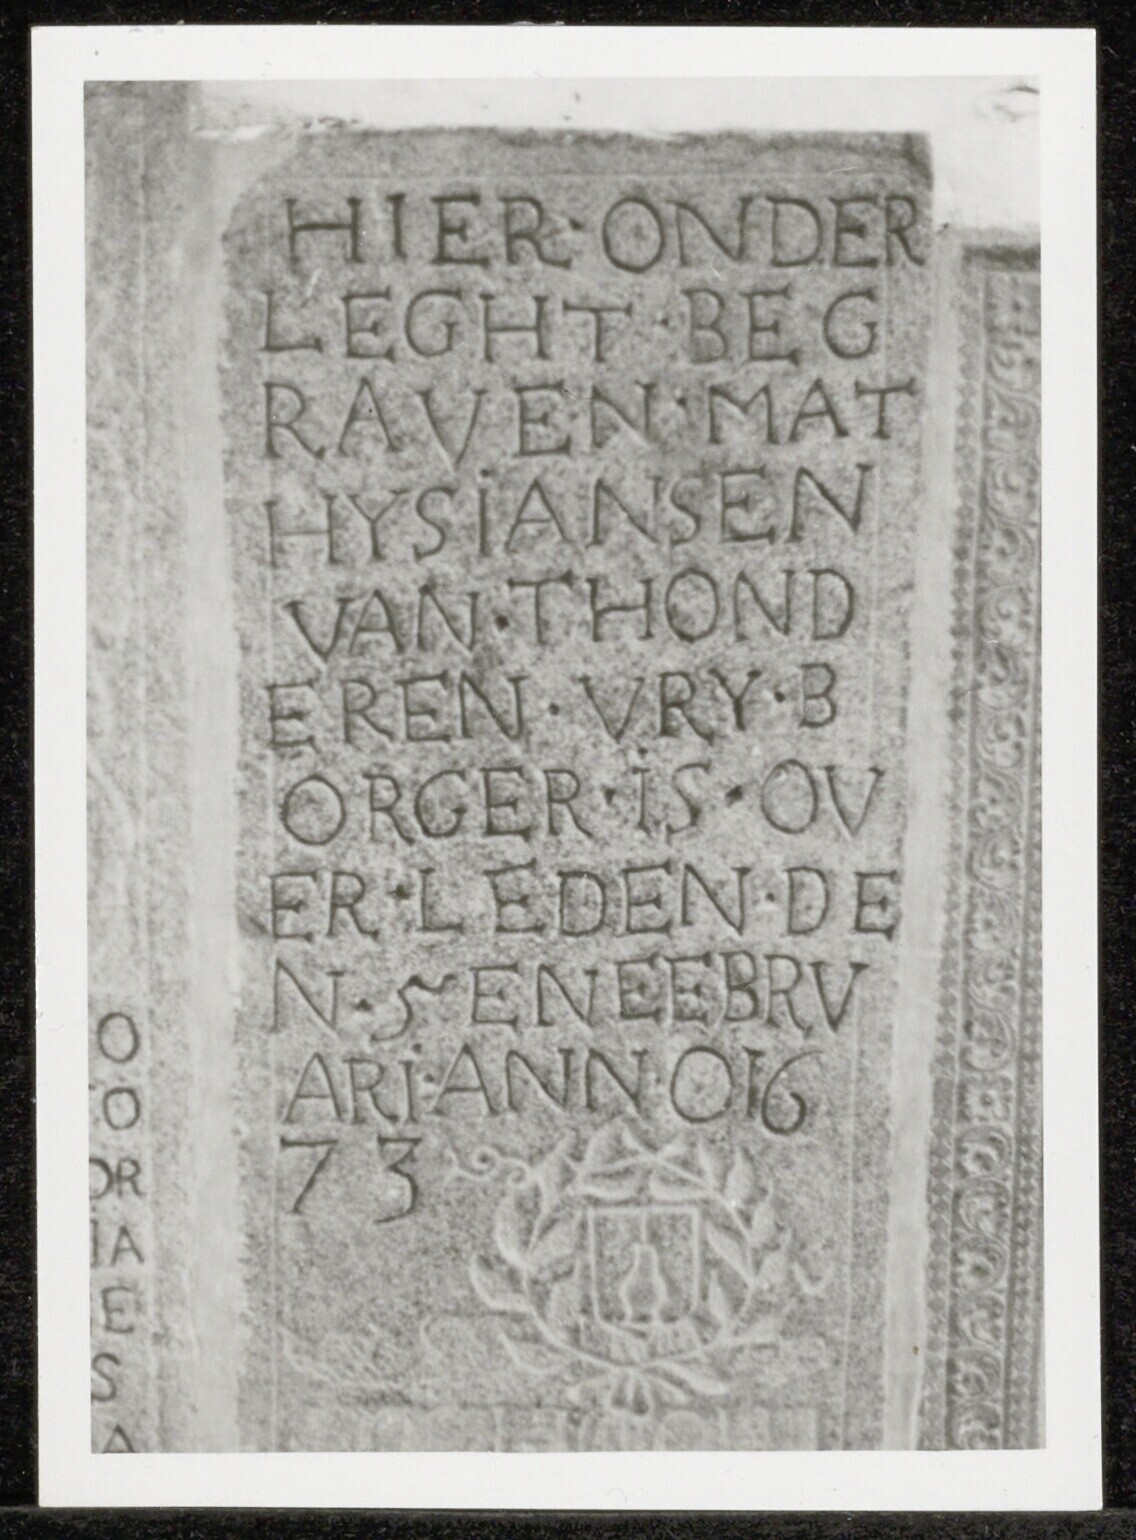 HIER·ONDER
LEGHT·BEG
RAVEN·MAT
HYSiANSEN
VAN·THOND
EREN·VRY·B
ORGER·iS·OV
ER·LEDEN·DE
N·5ENEEBRV
ARi·ANNO16
73
O
O
OR
IA
E
S
A